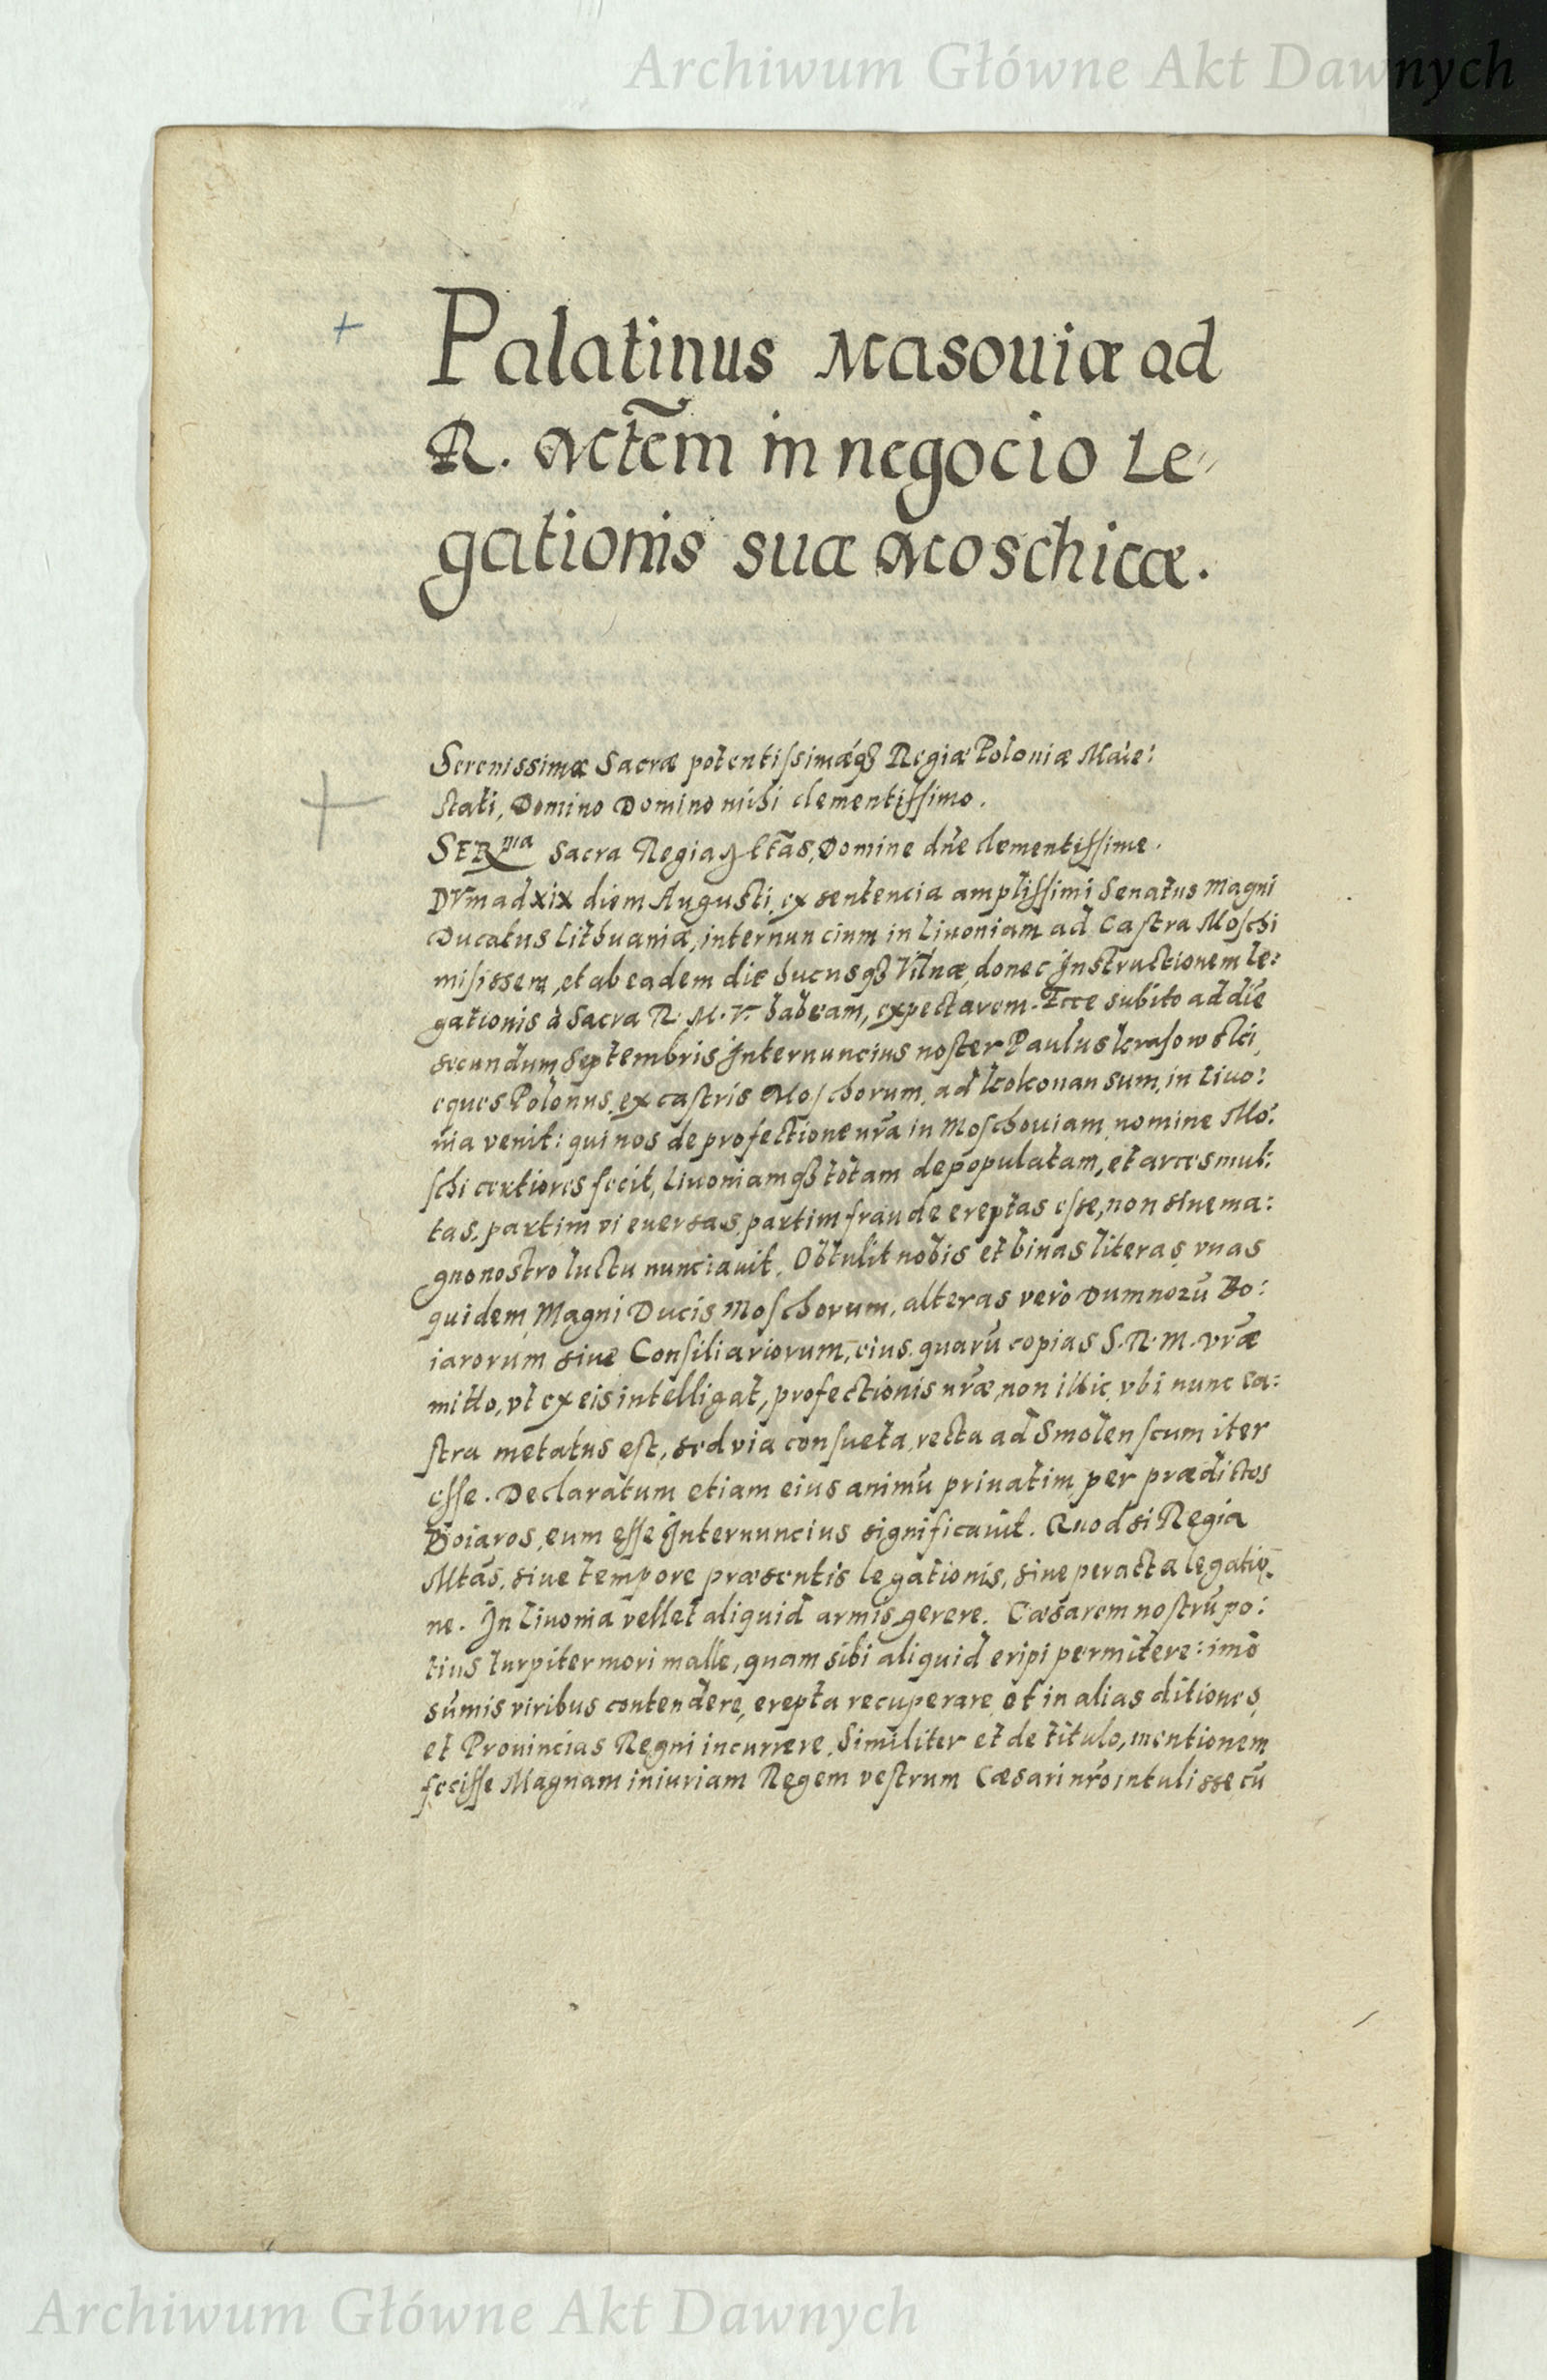 Archiwum Główne Akt Dawnych
Palatinus Masouiæ ad
R. Mctēm in negocio Le-
gationis suæ Moschicæ.
Serenissimæ Sacræ potentissimæq3 Regiæ Poloniæ Maie:
stati, Domino Domino mihi clementissimo.
SERma Sacra Regia Mtās, Domine dn̄e clementissime.
DVm ad xix diem Augusti, ex sentencia amplissimi Senatus magni
Ducatus Lithuaniæ, internuncium in Liuoniam ad Castra Moschi
misissem, et ab eadem die hucusq3 Vilnæ, donec Instructionem le:
gationis à Sacra R. M. V. habeam, expectarem. Ecce subito ad diē
secundum Septembris Internuncius noster Paulus Krasowski,
eques Polonus, ex castris Moschorum, ad Kokonausum, in Liuo:
nia venit: qui nos de profectione nr̄a in Moschouiam, nomine Mo:
schi certiores fecit, Liuoniamq3 totam depopulatam, et arces mul:
tas, partim vi euersas, partim fraude ereptas esse, non sine ma:
gno nostro luctu nunciauit. Obtulit nobis et binas literas, vnas
quidem, Magni Ducis Moschorum, alteras verò Dumnorū Bo:
iarorum siue Consiliariorum, eius, quarū copias S. R. M. vr̄æ
mitto, vt ex eis intelligat, profectionis nr̄æ, non illic, vbi nunc ca:
stra metatus est, sed via consueta, recta ad Smolenscum iter
esse. Declaratum etiam eius animū priuatim, per prædictos
Boiaros, eum esse Internuncius significauit. Quod si Regia
Mtās, siue tempore præsentis legationis, siue peracta legatio
ne. In Liuonia vellet aliquid armis gerere. Cæsarem nostrū po:
tius turpiter mori malle, quam sibi aliquid eripi permitere: imō
sum̄is viribus contendere, erepta recuperare, et in alias ditiones,
et Prouincias Regni incurrere. Similiter et de titulo, mentionem
fecisse Magnam iniuriam Regem vestrum Cæsari nr̄o intulisse, cū
Archiwum Główne Akt Dawnych